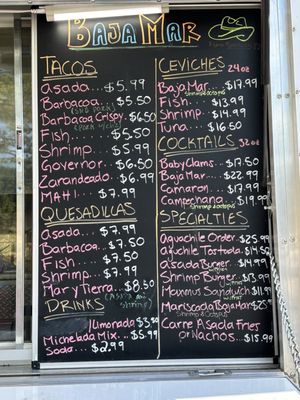 BAJA MAR
TACOS
Asada...$5.99
Barbacoa...$5.50
Barbacoa Crispy...$6.50
Fish...$5.50
Shrimp...$5.99
Governor...$6.50
Zarandeado...$6.99
MAHI...$7.99
QUESADILLAS
Asada...$7.99
Barbacoa...$7.50
Fish...$7.50
Shrimp...$7.99
Mar y Tierra...$8.50
(Asada and shrimp)
DRINKS
Limonada $3.50
Michelada Mix...$5.99
Soda...$2.99
CEVICHES 24oz
Baja Mar...$17.99
Shrimp & octopus
Fish...$13.99
Shrimp...$14.99
Tuna...$16.50
COCKTAILS 32oz
Baby Clams...$17.50
Baja Mar...$22.99
Camaron...$17.99
Campechana...$19.99
Shrimp & octopus
SPECIALTIES
Aguachile Order...$25.99
Aguachile Tostada...$14.50
Asada Burger...$14.99
Shrimp Burger...$13.99
Mammus Sandwich $11.99
Mariscada Baja Mar $25
Shrimp & Octopus
Carne Asada Fries
or Nachos...$15.99